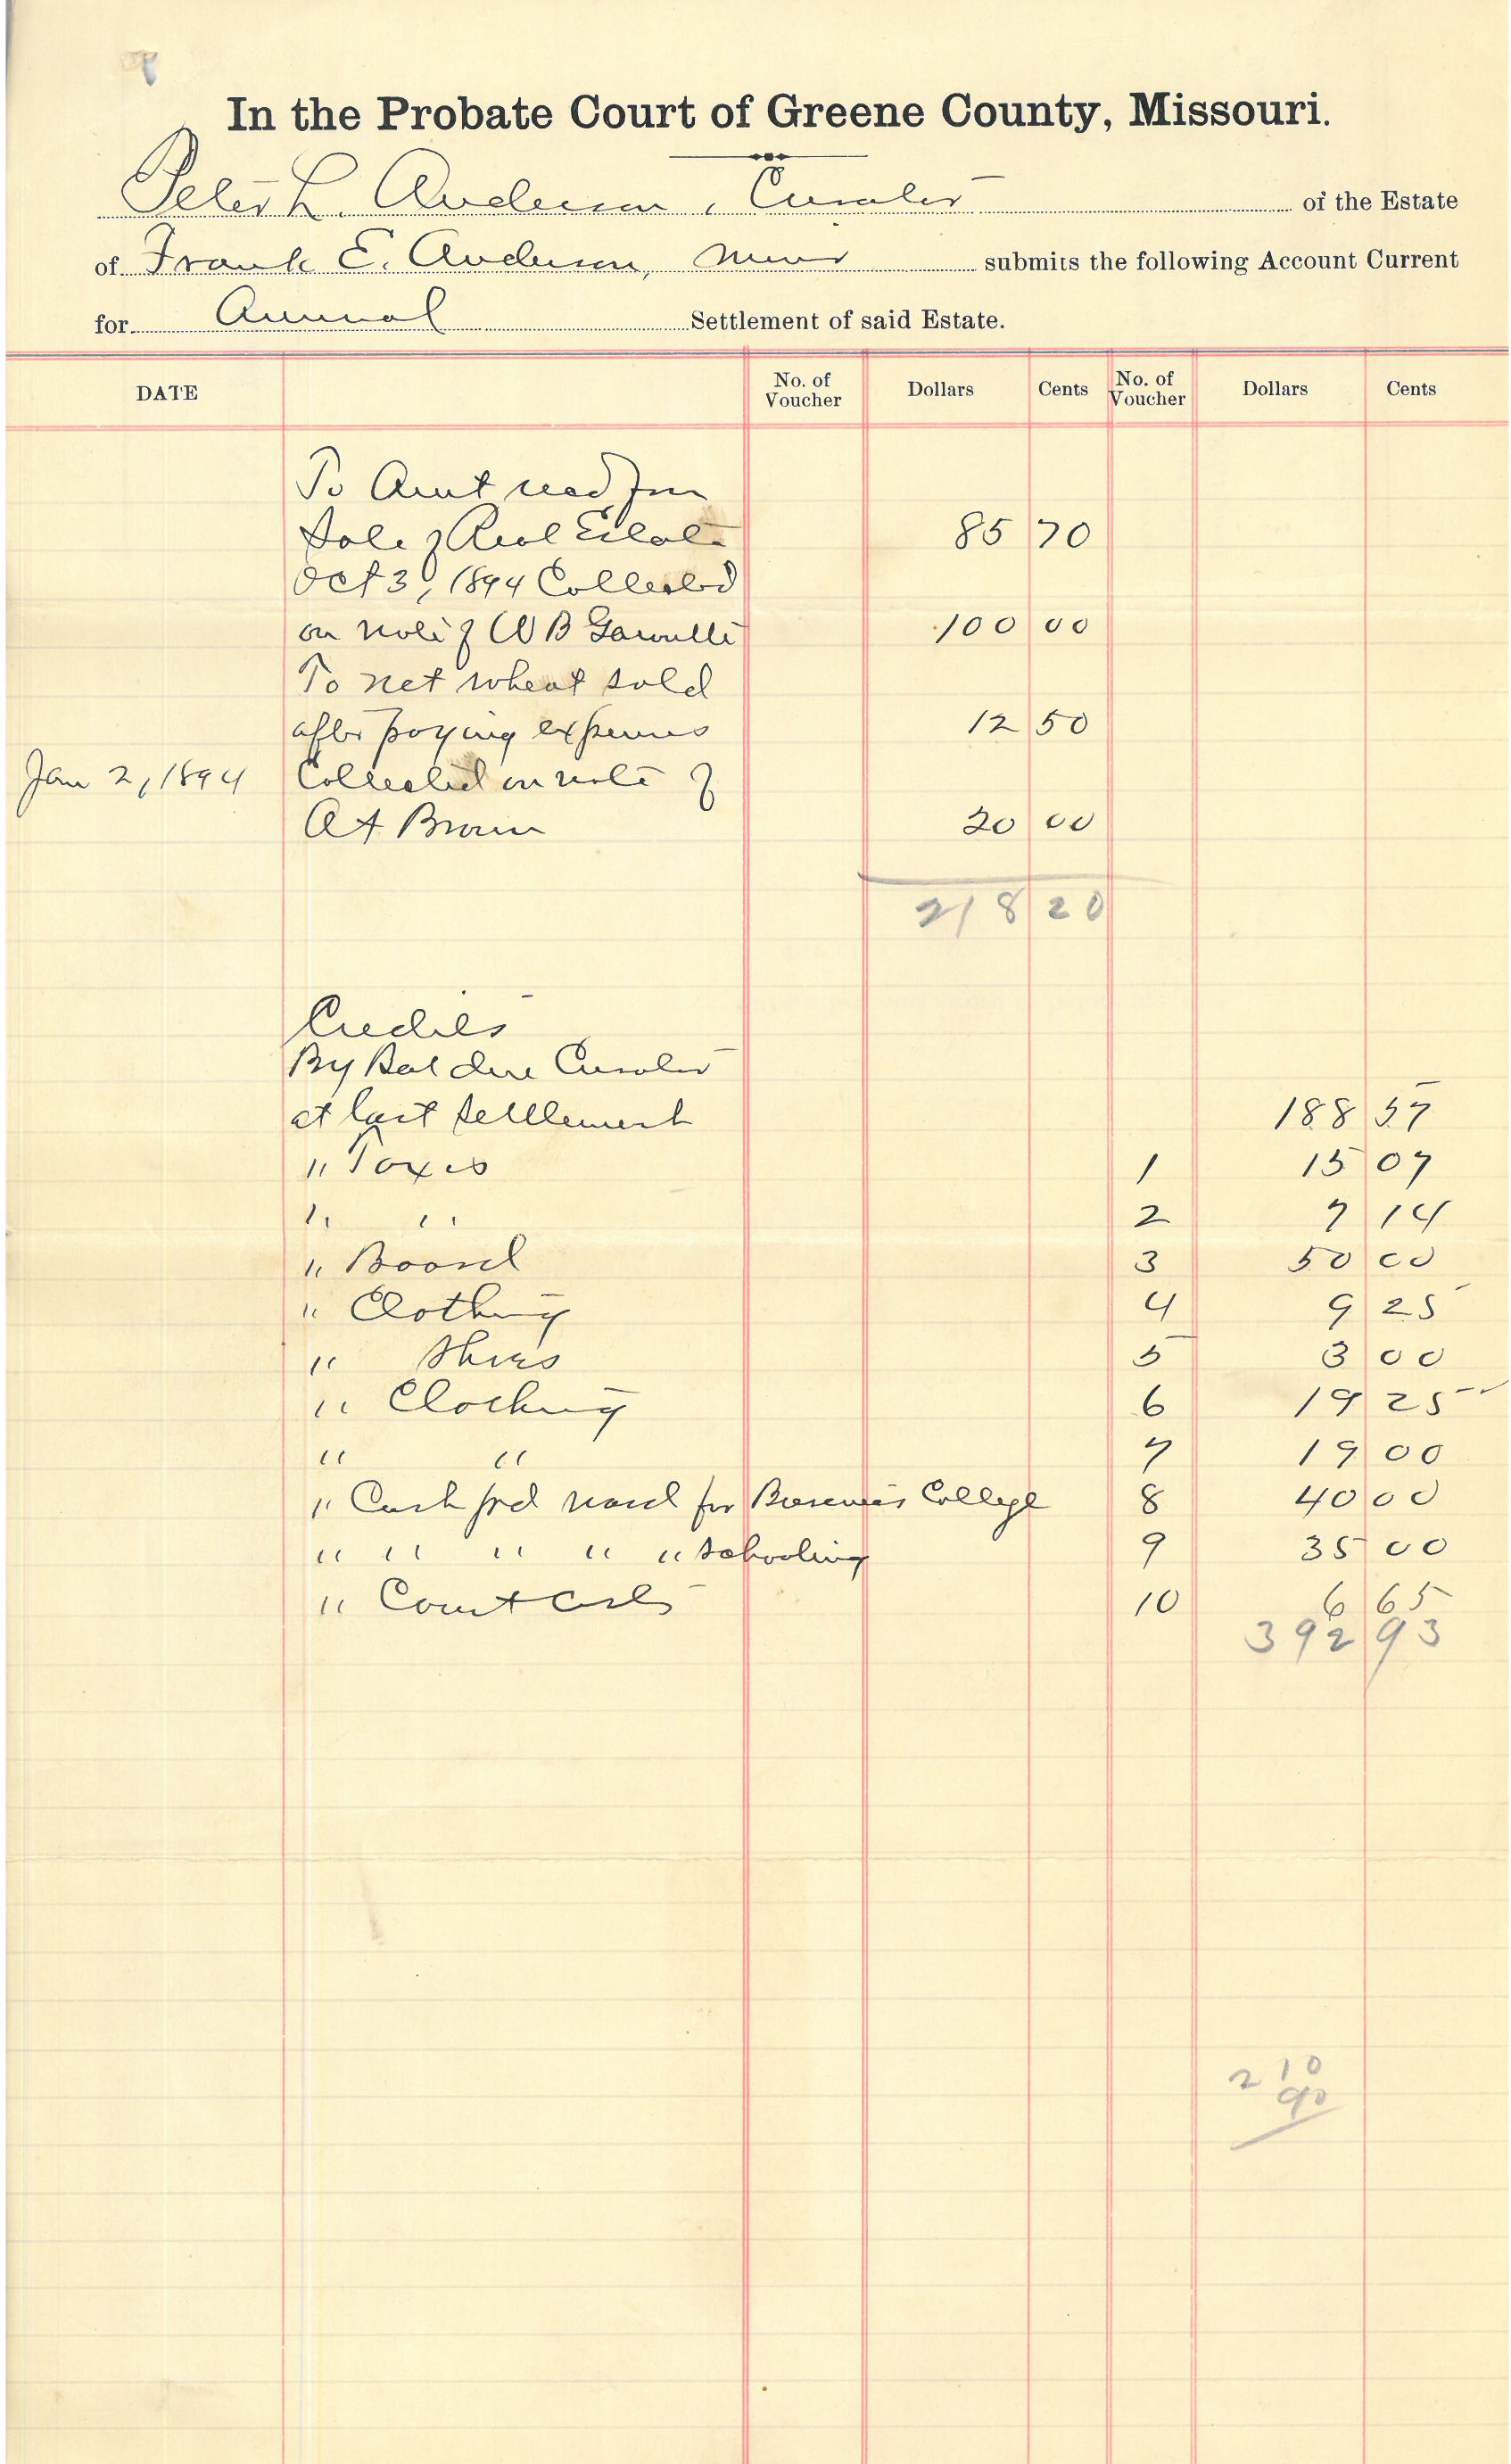 In the Probate Court of Greene County, Missouri.
Peter L. Anderson, Curator of the Estate
of Frank E. Anderson, minor submits the following Account Current
for Annual Settlement of said Estate.
DATE No. of Voucher Dollars Cents No. of Voucher Dollars Cents
To Amt recd from
Sale of Real Estate 85 70
Oct 3, 1894 Collected
on note of W B 100 00
To net wheat sold
after paying expenses 12 50
Jan 2, 1894 Collected on note of
A Brown 20 00
218 20
Credits
By Bal due Curator
at last settlement 188 57
" Taxes 1 15 07
" " 2 7 14
" Board 3 50 00
" Clothing 4 9 25
" Shoes 5 3 00
" Clothing 6 19 25
" " 7 19 00
" Cash pd ward for Business College 8 40 00
" " " " " schooling 9 35 00
" Court Costs 10 6 65
392 93
2 10
90